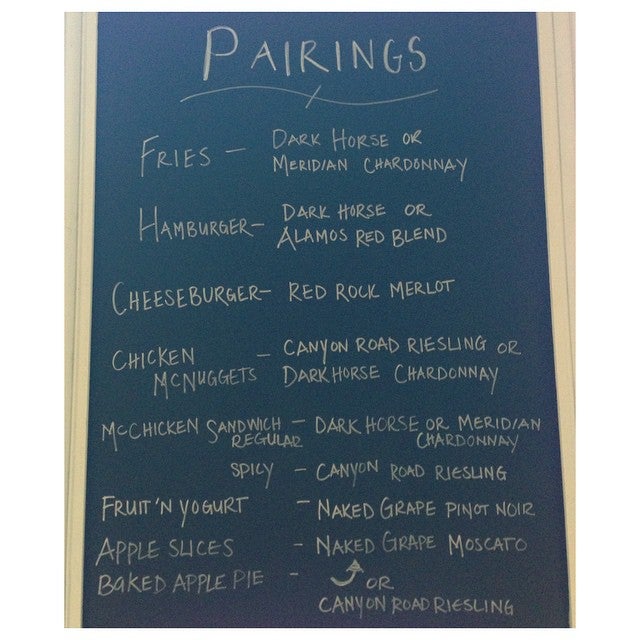 PAIRINGS
FRIES - DARK HORSE OR
MERIDIAN CHARDONNAY
HAMBURGER- DARK HORSE OR
ALAMOS RED BLEND
CHEESEBURGER- RED ROCK MERLOT
CHICKEN - CANYON ROAD RIESLING OR
MCNUGGETS DARK HORSE CHARDONNAY
MCCHICKEN SANDWICH - DARK HORSE OR MERIDIAN
REGULAR CHARDONNAY
SPICY - CANYON ROAD RIESLING
FRUIT 'N YOGURT - NAKED GRAPE PINOT NOIR
APPLE SLICES - NAKED GRAPE MOSCATO
BAKED APPLE PIE - OR
CANYON ROAD RIESLING